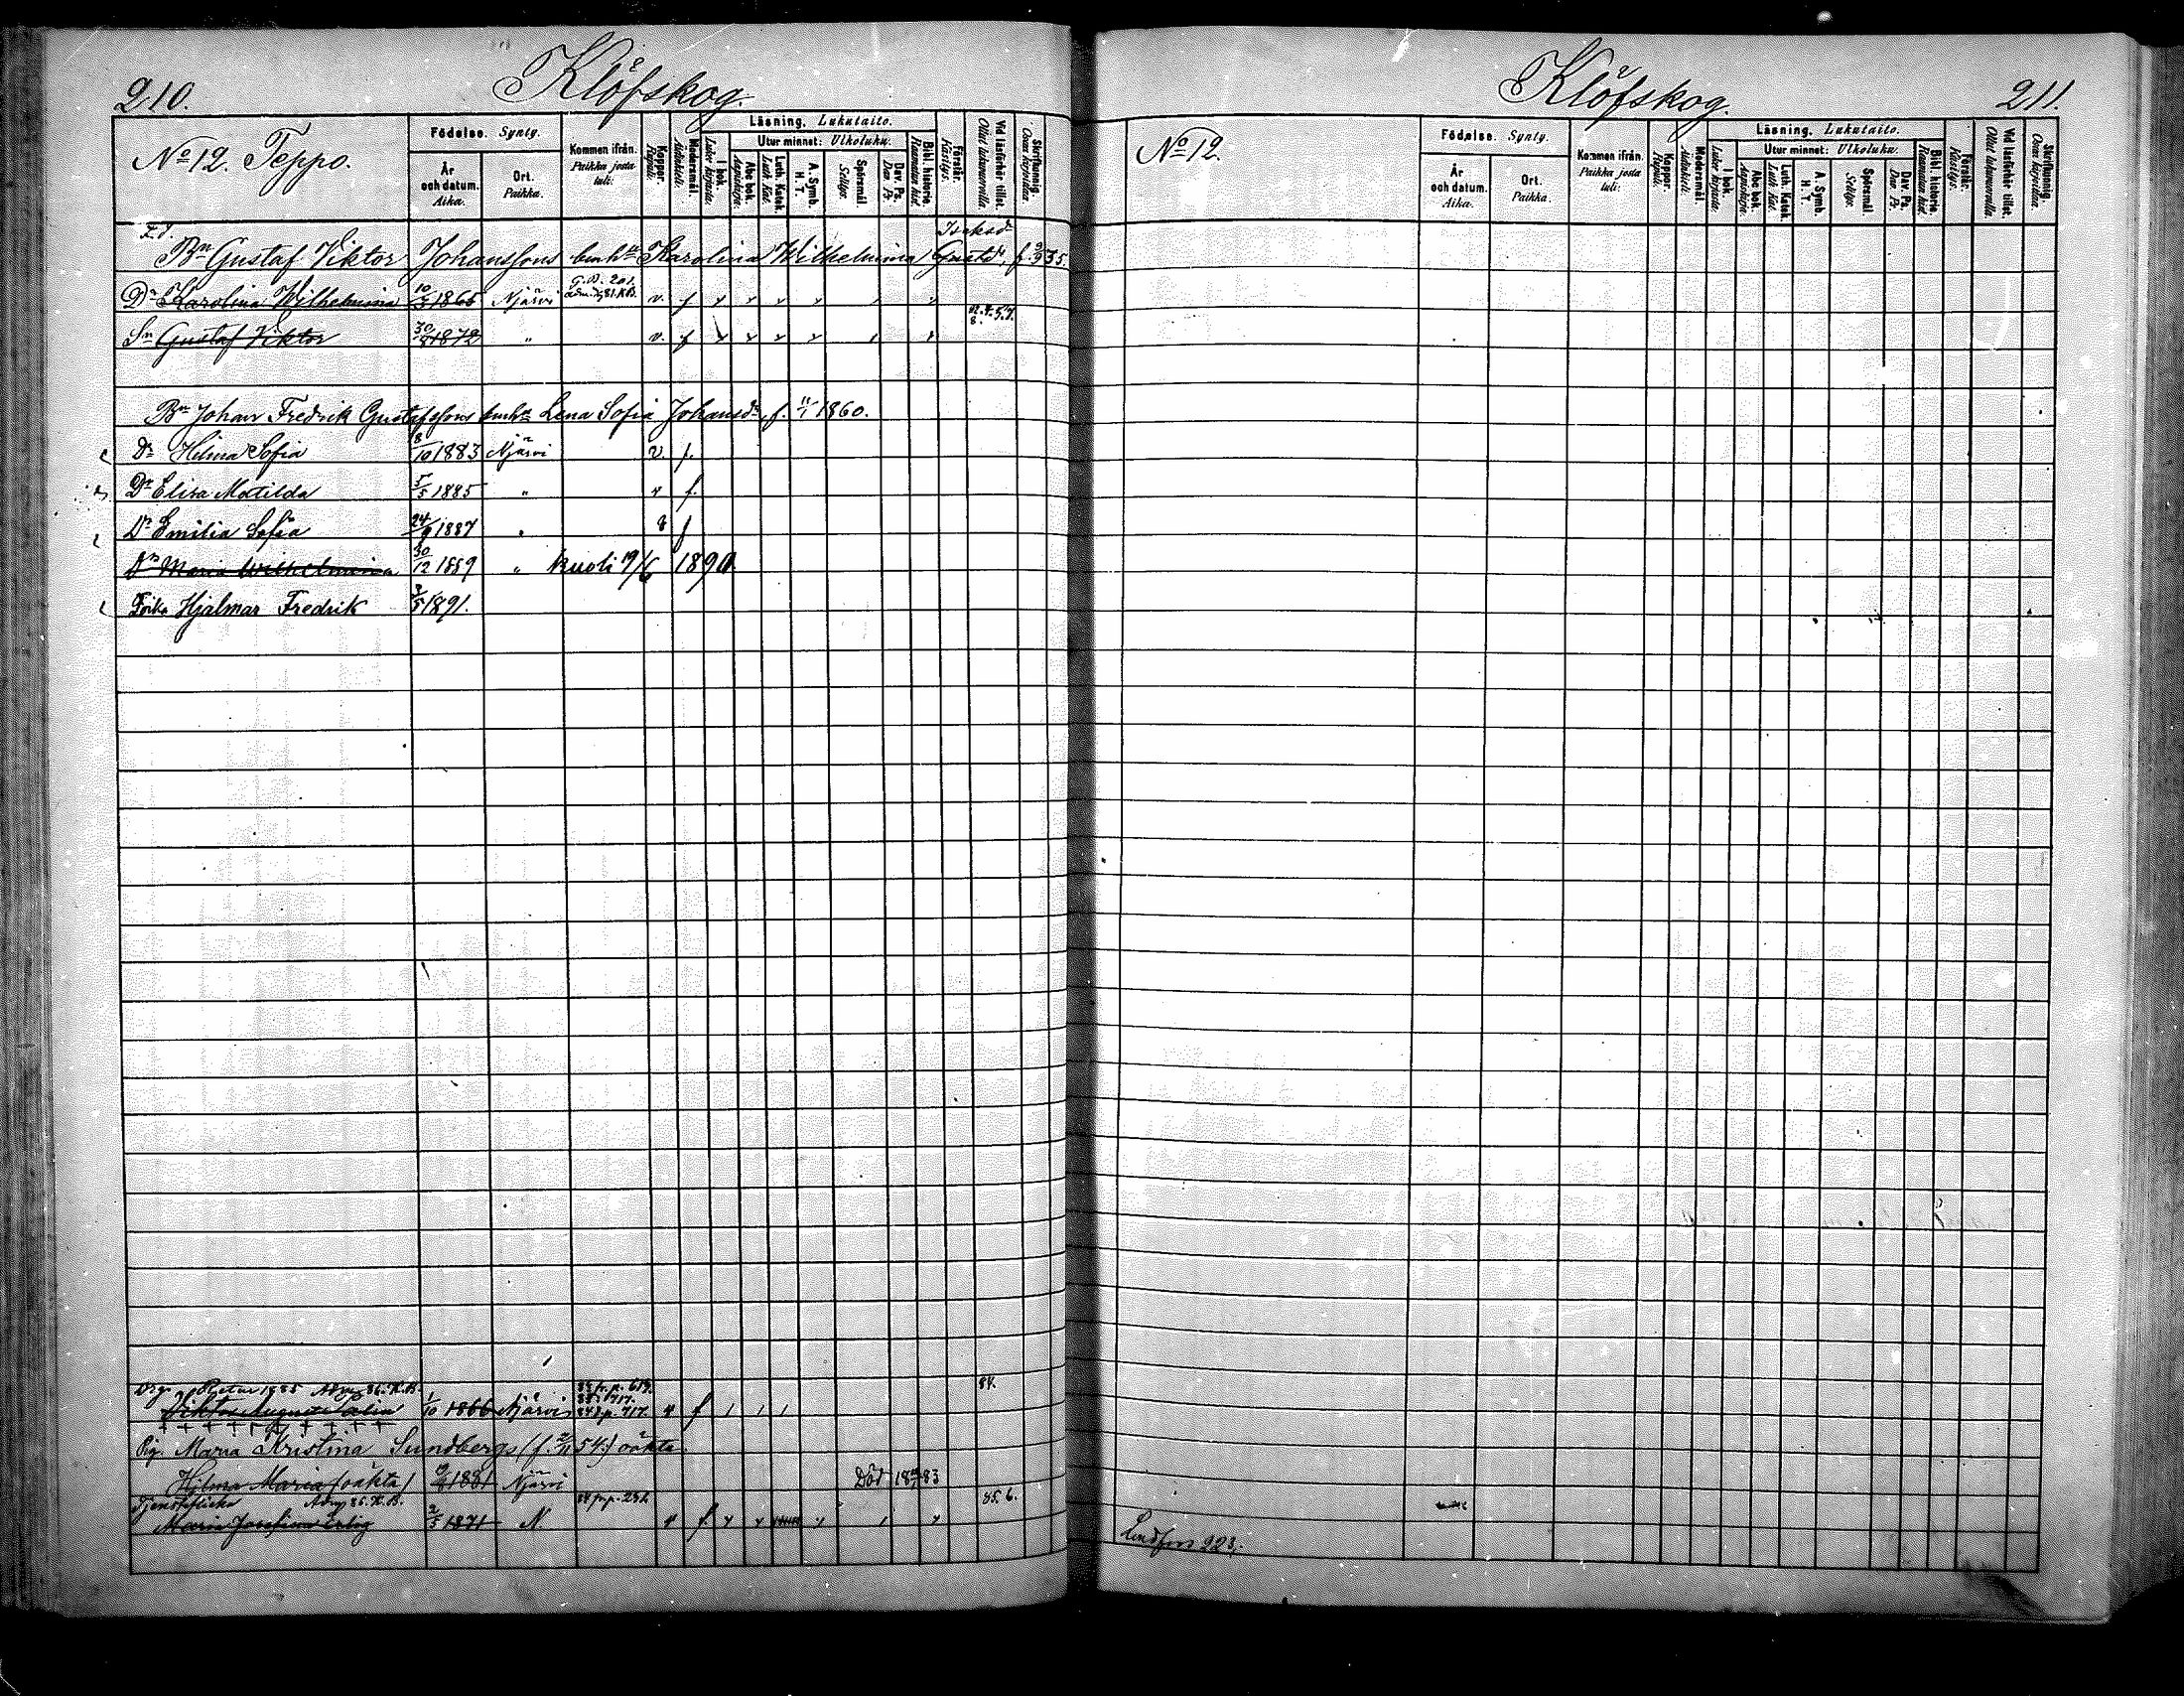 210.
Klöfskog.
No 12. Teppo.
Födelse. Synty.
År och datum. Aika.
Ort. Paikka.
Kommen ifrån. Paikka josta tuli:
Koppor. Rupuli.
Modersmål. Äidinkieli.
Läsning. Lukutaito.
I bok. Luku kirjasta.
Utur minnet: Ulkoluku.
Abc bok. Aapiskirja.
Luth. Katek. Luth. Kat.
A. Symb. H. T.
Spörsmål. Selitys.
Dav. Ps. Dav. Ps.
Bibl. historie. Raamatun hist.
Förstår. Käsitys.
Vid läsförhör tillst. Ollut lukukunnalla.
Skrifkunnig. Osaa kirjoittaa.
F.d.
Isaksdr
Bn Gustaf Viktor Johanssons bmha Karolina Wilhelmina Gustdr, f. 9/9 35.
Dr Karolina Wilhelmina 10/3 1866 Njärvi G.B. 201. v. f
Sn Gustaf Viktor 30/4 1872 " v. f
82. 4. 5. 7. 8.
Bn Johan Fredrik Gustafssons bmha Lena Sofia Johansdr, f. 11/1 1860.
Dr Hilma Sofia 8/10 1883 Njärvi v. f.
Dr Elisa Matilda 5/5 1885 " v f.
Dr Emilia Sofia 24/9 1887 " v f
Dr Maria Wilhelmina 30/12 1889 " kuoli 19/6 1890.
Poika Hjalmar Fredrik 3/5 1891.
Drg. 1885 86. K.B.
84.
Viktor August 1/10 1866 Njärvi 84 p. 717. v f
Pig. Maria Kristina Sundbergs (f. 2/11 54.) oäkta
Hilma Maria (oäkta) 1881 Njärvi Död 83
Tjensteflicka 86. K.B. 85. 6.
Maria Josefina Erlig 2/3 1871 N. v f
Klöfskog.
211.
No 12.
Födelse. Synty.
År och datum. Aika.
Ort. Paikka.
Kommen ifrån. Paikka josta tuli:
Koppor. Rupuli.
Modersmål. Äidinkieli.
Läsning. Lukutaito.
I bok. Luku kirjasta.
Utur minnet: Ulkoluku.
Abc bok. Aapiskirja.
Luth. Katek. Luth. Kat.
A. Symb. H. T.
Spörsmål. Selitys.
Dav. Ps. Dav. Ps.
Bibl. historie. Raamatun hist.
Förstår. Käsitys.
Vid läsförhör tillst. Ollut lukukunnalla.
Skrifkunnig. Osaa kirjoittaa.
Lindfors 223.